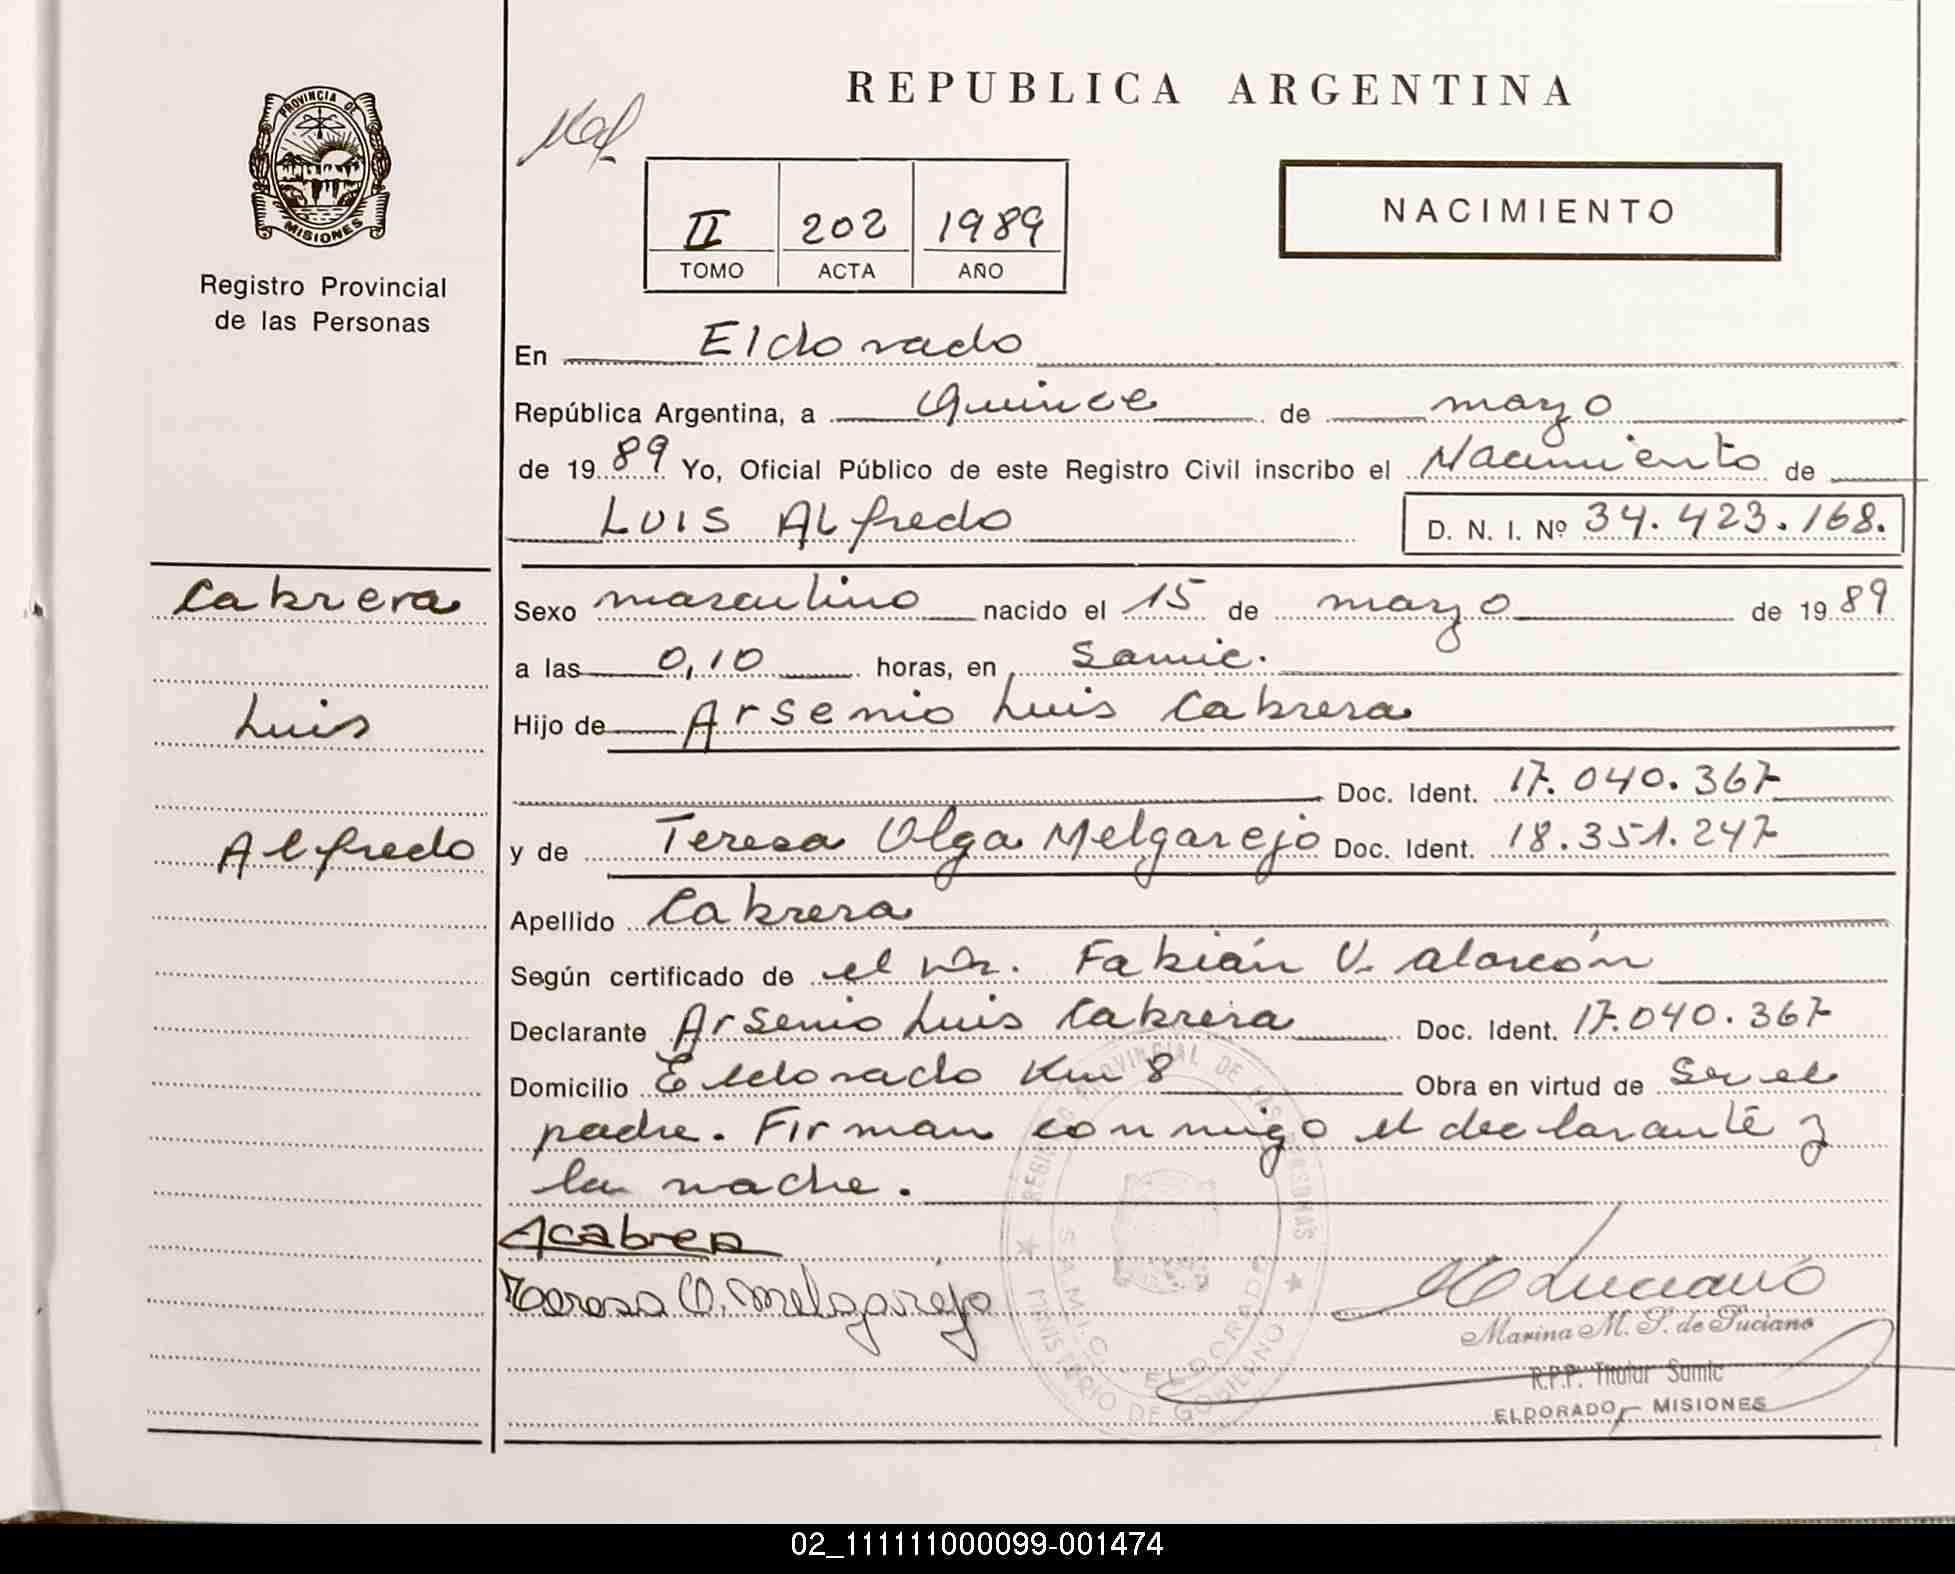 REPUBLICA ARGENTINA
PROVINCIA DE
MISIONES
Registro Provincial
de las Personas
II 202 1989
TOMO ACTA AÑO
NACIMIENTO
En Eldorado
República Argentina, a Quince de mayo
de 1989 Yo, Oficial Público de este Registro Civil inscribo el Nacimiento de
Luis Alfredo D. N. I. Nº 34.423.168.
Cabrera
Luis
Alfredo
Sexo masculino nacido el 15 de mayo de 1989
a las 0,10 horas, en Samic.
Hijo de Arsenio Luis Cabrera
Doc. Ident. 17.040.367
y de Teresa Olga Melgarejo Doc. Ident. 18.351.247
Apellido Cabrera
Según certificado de el Dr. Fabián V. Alarcón
Declarante Arsenio Luis Cabrera Doc. Ident. 17.040.367
Domicilio Eldorado Km 8 Obra en virtud de ser el
padre. Firman conmigo el declarante y
la madre.
Acabrera
Teresa O. Melgarejo
REGISTRO PROVINCIAL DE LAS PERSONAS
S.A.M.I.C. ELDORADO
MINISTERIO DE GOBIERNO
Luciano
Marina M. P. de Luciano
R.P.P. Titular Samic
ELDORADO - MISIONES
02_111111000099-001474